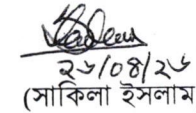 ২৬/০৪/২৬
(সাকিলা ইসলাম